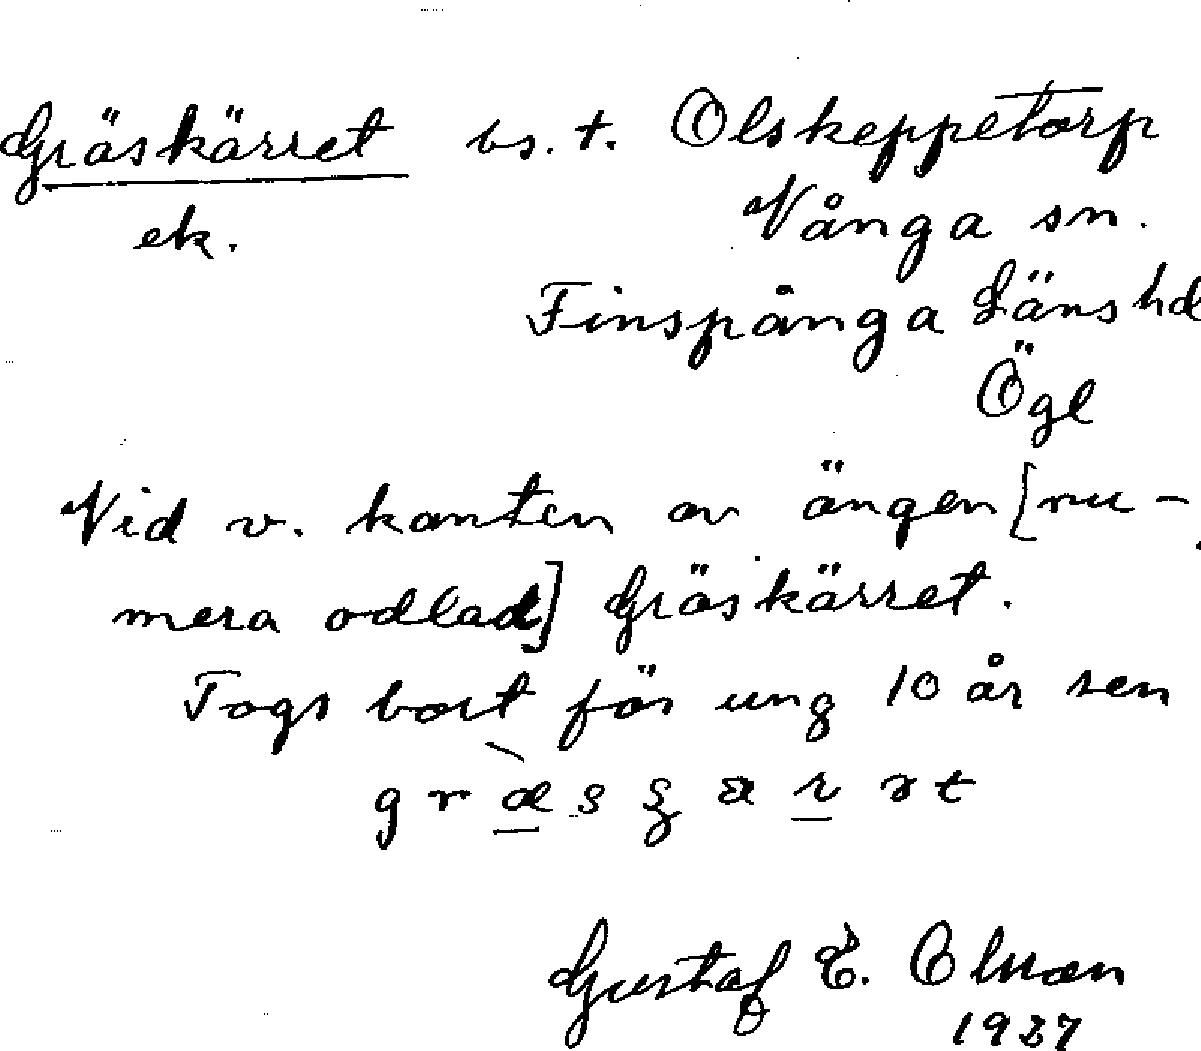 Gräskärret bs. t. Olskeppetorp
ek. Vånga sn.
Finspånga Läns hd
Ögl
Vid v. kanten av ängen [nu-
mera odlad] Gräskärret.
Togs bort för ung 10 år sen
Gustaf E.
1937